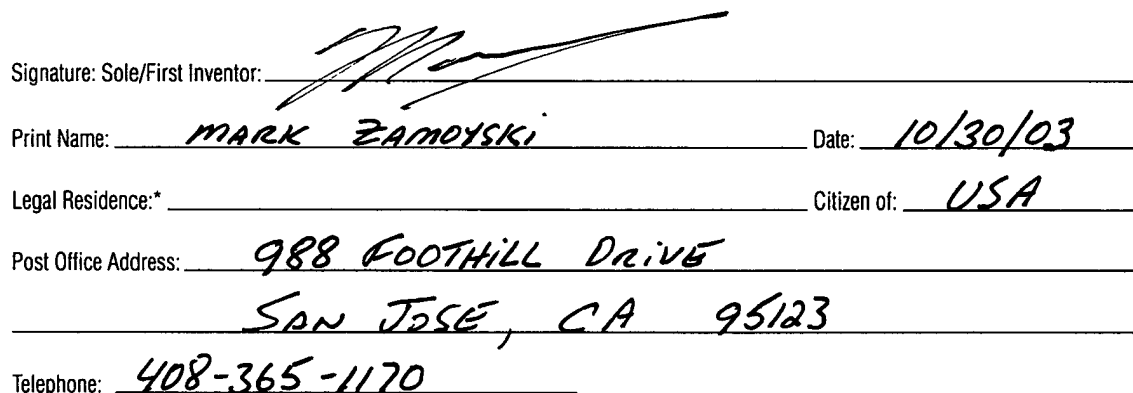 Signature: Sole/First Inventor:
Print Name: MARK ZAMOYSKI Date: 10/30/03
Legal Residence:* Citizen of: USA
Post Office Address: 988 FOOTHILL DRIVE
SAN JOSE, CA 95123
Telephone: 408-365-1170